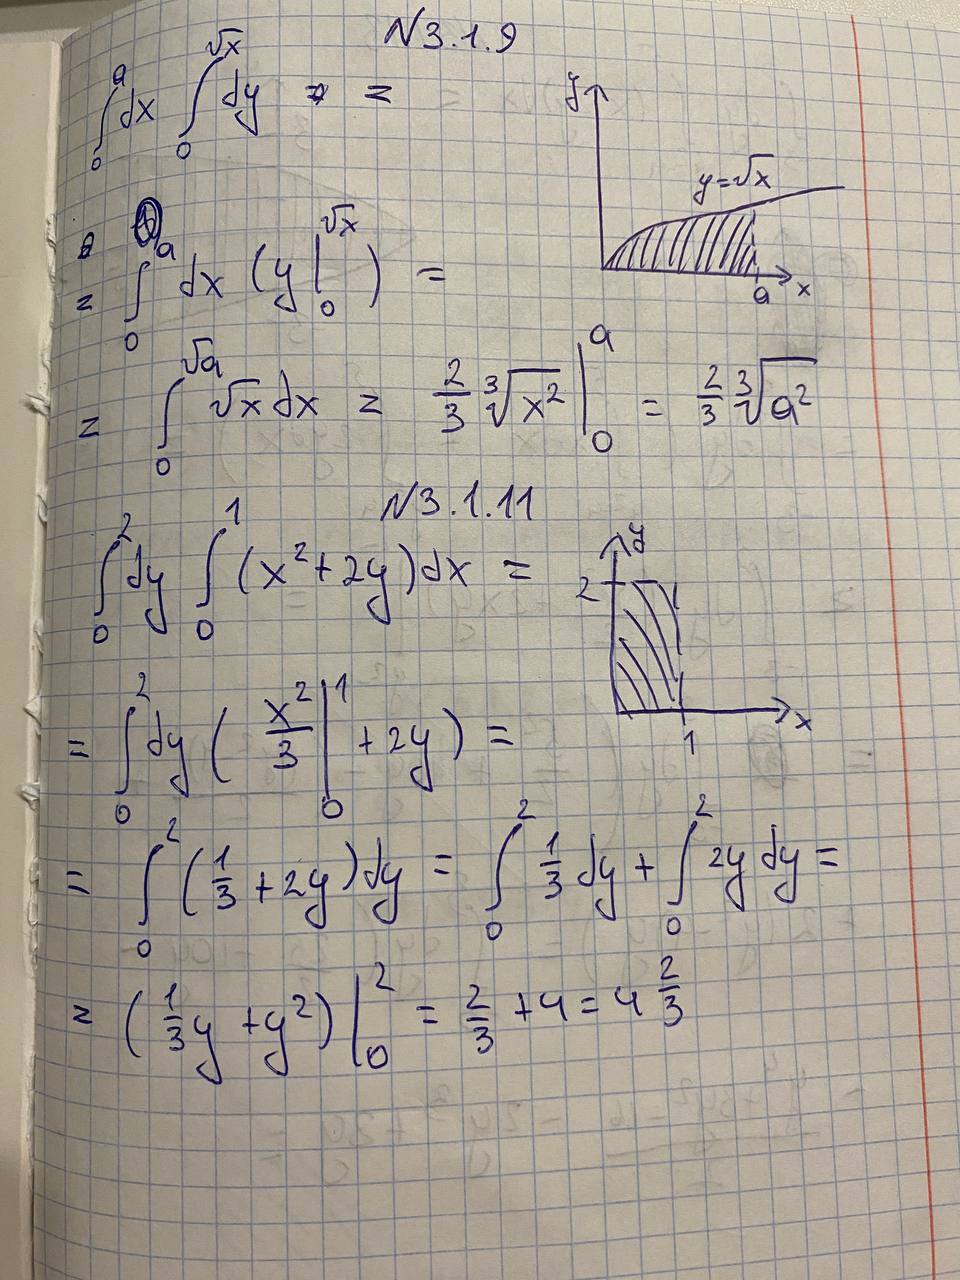 N3.1.9
∫₀ᵃ dx ∫₀^√x dy =
y
y=√x
a x
= ∫₀ᵃ dx (y |₀^√x) =
= ∫₀^√a √x dx = 2/3 ∛x² |₀ᵃ = 2/3 ∛a²
N3.1.11
∫₀² dy ∫₀¹ (x²+2y)dx =
y
2
x
1
= ∫₀² dy (x²/3 |₀¹ + 2y) =
= ∫₀² (1/3 + 2y)dy = ∫₀² 1/3 dy + ∫₀² 2y dy =
= (1/3 y + y²) |₀² = 2/3 + 4 = 4 2/3